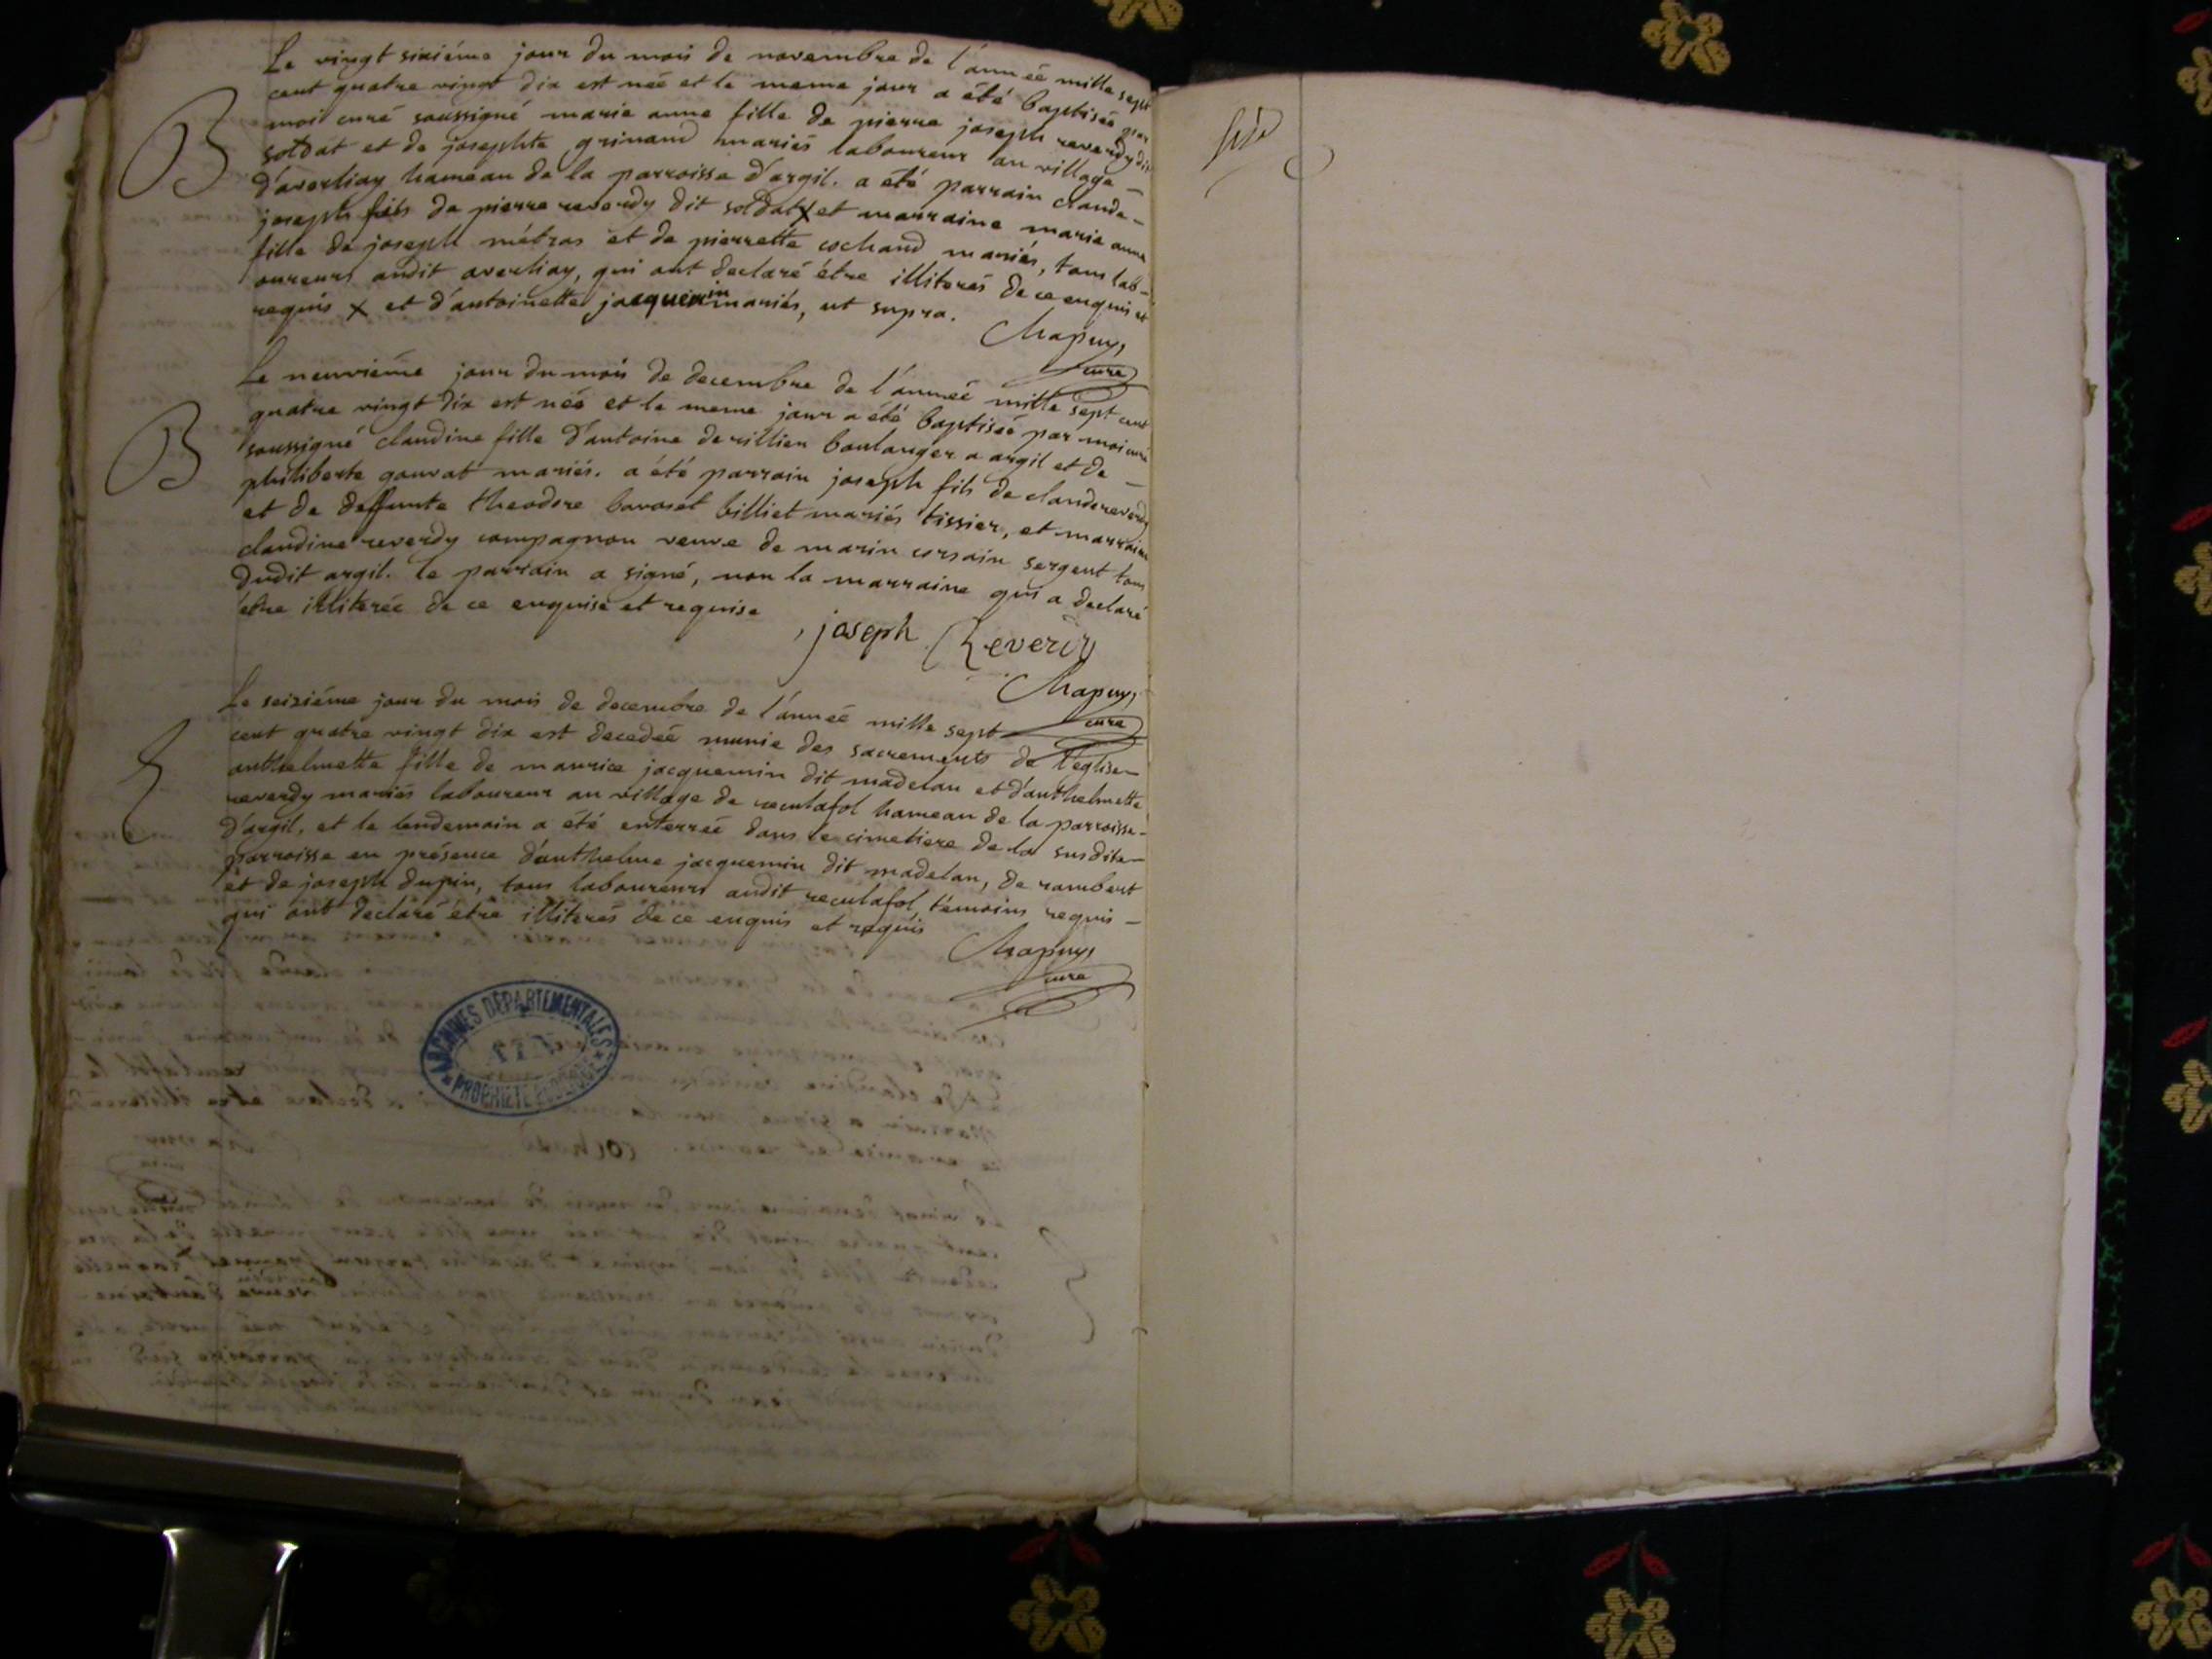 Le vingt sixiéme jour du mois de novembre de l'année mille sept
cent quatre vingt dix est née et le meme jour a été baptisée par
moi curé soussigné marie anne fille de pierre joseph reverdy dit
soldat et de josephte grinand mariés laboureur au village –
d'averliay hameau de la parroisse d'argil. a été parrain claude –
joseph fils de pierre reverdy dit soldat x et marraine marie anne
fille de joseph métras et de pierrette cochand mariés, tous lab-
oureurs audit averliay, qui ont declaré étre illiterés de ce enquis et
requis x et d'antoinette jacquemin mariés, ut supra.
Chapuys
curé
B
Le neuviéme jour du mois de decembre de l'année mille sept cent
quatre vingt dix est née et le meme jour a été baptisée par moi curé
soussigné claudine fille d'antoine derillieu boulanger a argil et de –
philiberte gouvat mariés. a été parrain joseph fils de claude reverdy
et de deffunte theodore bavoset billiet mariés tissier, et marraine
claudine reverdy compagnon veuve de marin corsain sergent tous
dudit argil. le parrain a signé, non la marraine qui a declaré
étre illiterée de ce enquise et requise
B
joseph Reverdy
Chapuys
curé
Le seiziéme jour du mois de decembre de l'année mille sept
cent quatre vingt dix est decedée munie des sacrements de l'eglise –
anthelmette fille de maurice jacquemin dit madelan et d'anthelmette
reverdy mariés laboureur au village de reculafol hameau de la parroisse –
d'argil, et le lendemain a été enterrée dans le cimetiere de la susdite –
parroisse en présence d'anthelme jacquemin dit madelan, de rambert
et de joseph dupin, tous laboureurs audit reculafol, témoins requis –
qui ont declaré étre illiterés de ce enquis et requis
Chapuys
curé
ARCHIVES DÉPARTEMENTALES
AIN
PROPRIÉTÉ PUBLIQUE